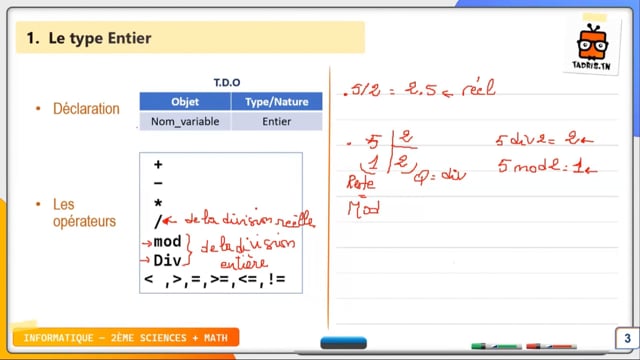 1. Le type Entier
TADRIS.TN
• Déclaration
T.D.O
Objet Type/Nature
Nom_variable Entier
• Les opérateurs
+
-
*
/ ← de la division réelle
→ mod } de la division
→ Div } entière
< ,>,=,>=,<=,!=
. 5/2 = 2.5 ← réel
. 5 | 2
1 | 2
Reste Q = div
=
Mod
5 div 2 = 2 ←
5 mod 2 = 1 ←
INFORMATIQUE - 2ÈME SCIENCES + MATH
3